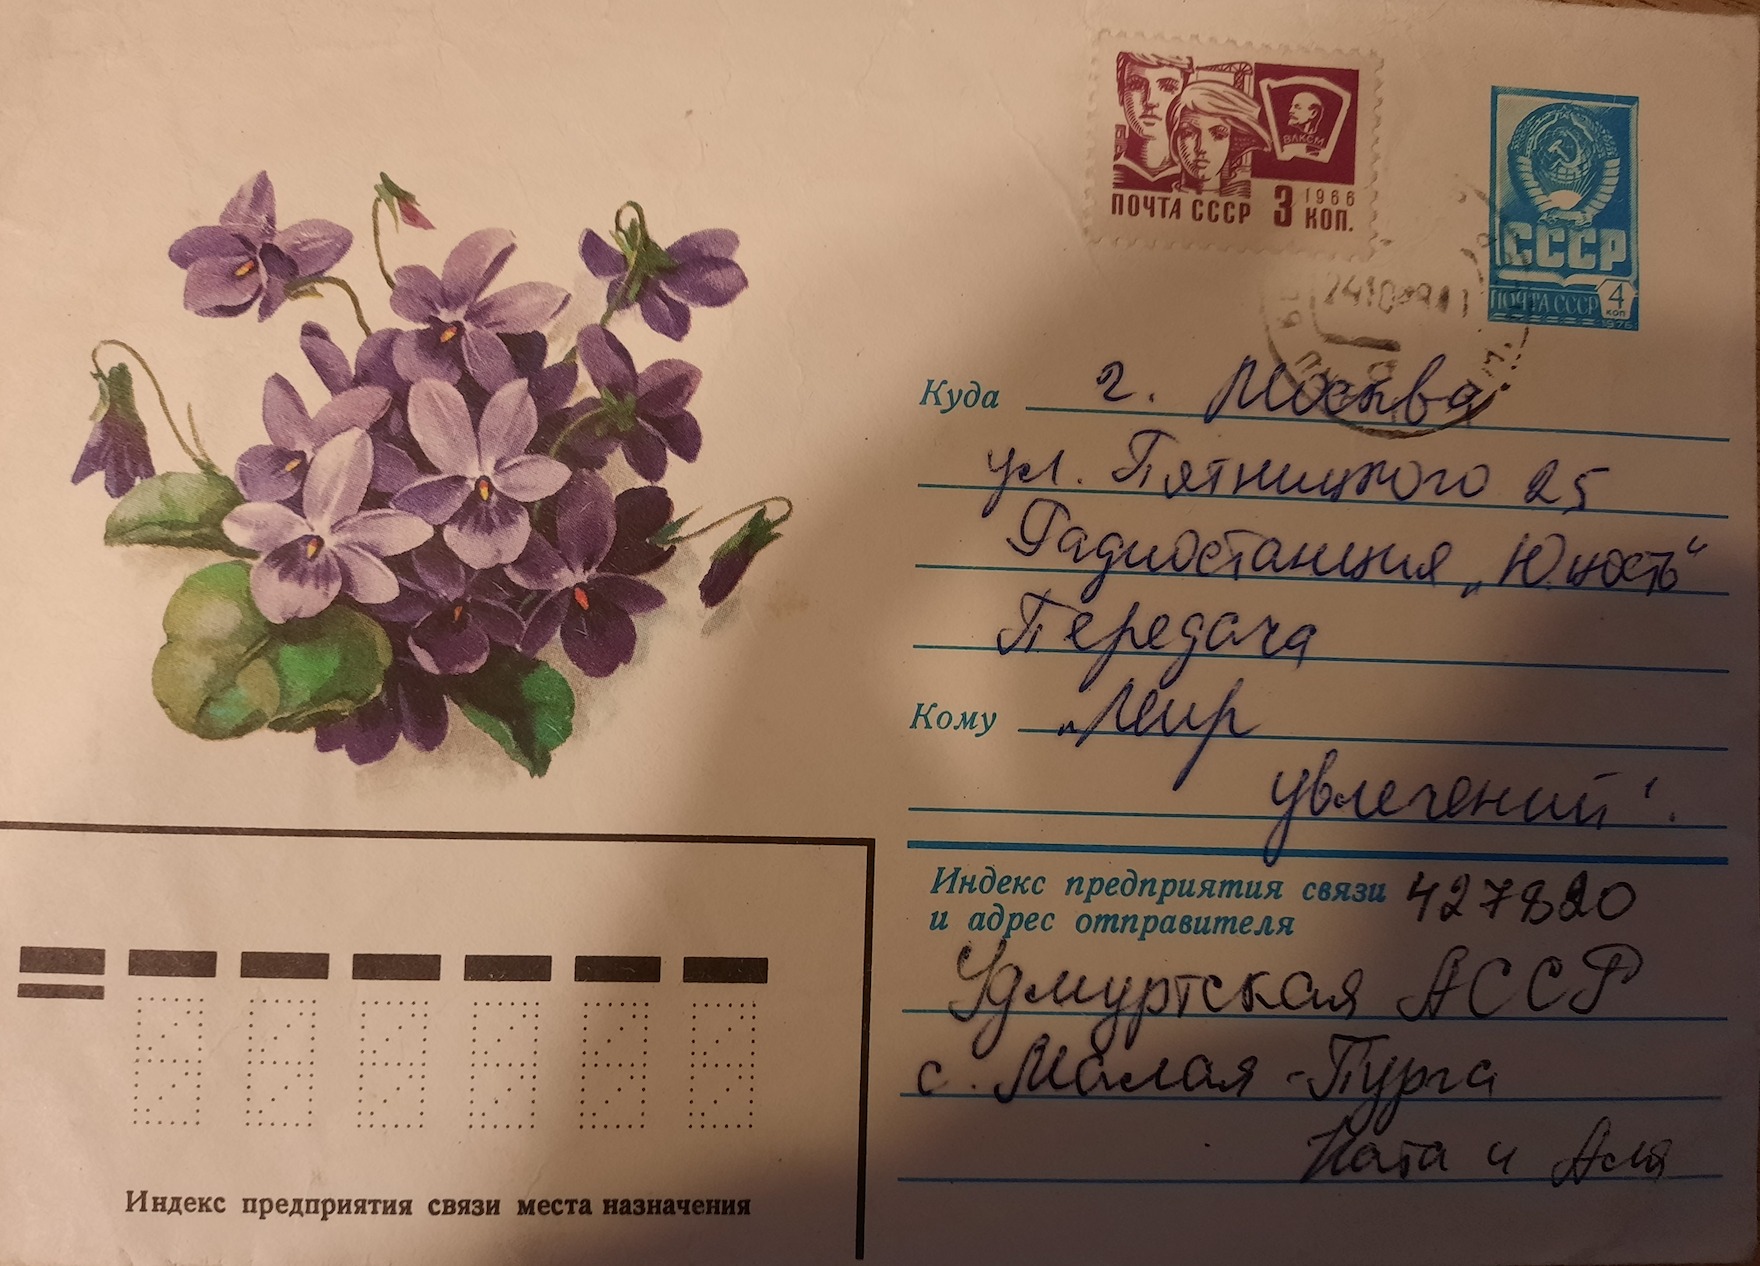 ВЛКСМ
1966
ПОЧТА СССР 3 КОП.
СССР
ПОЧТА СССР 4
коп
1976
241089
Куда г. Москва
ул. Пятницкого 25
Радиостанция „Юность“
Передача
Кому „Мир
увлечений".
Индекс предприятия связи 427820
и адрес отправителя
Удмуртская АССР
с. Малая-Пурга
Ната и Аля
Индекс предприятия связи места назначения